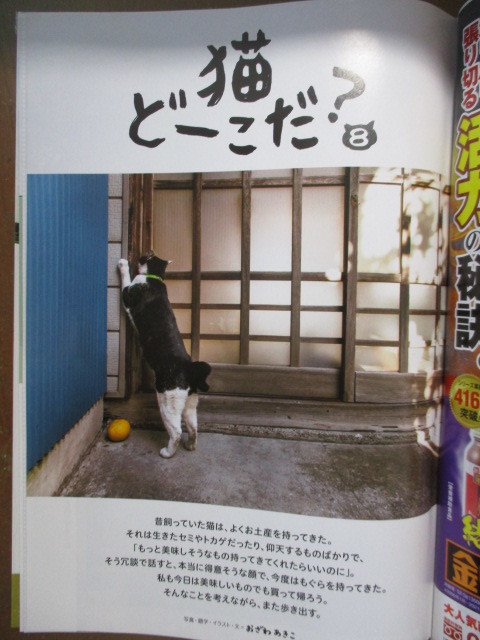 猫
どーこだ？
8
昔飼っていた猫は、よくお土産を持ってきた。
それは生きたセミやトカゲだったり、仰天するものばかりで、
「もっと美味しそうなもの持ってきてくれたらいいのに」。
そう冗談で話すと、本当に得意そうな顔で、今度はもぐらを持ってきた。
私も今日は美味しいものでも買って帰ろう。
そんなことを考えながら、また歩き出す。
写真・題字・イラスト・文・おざわあきこ
張り切る
活力
の秘訣
416
突破
金
大人気